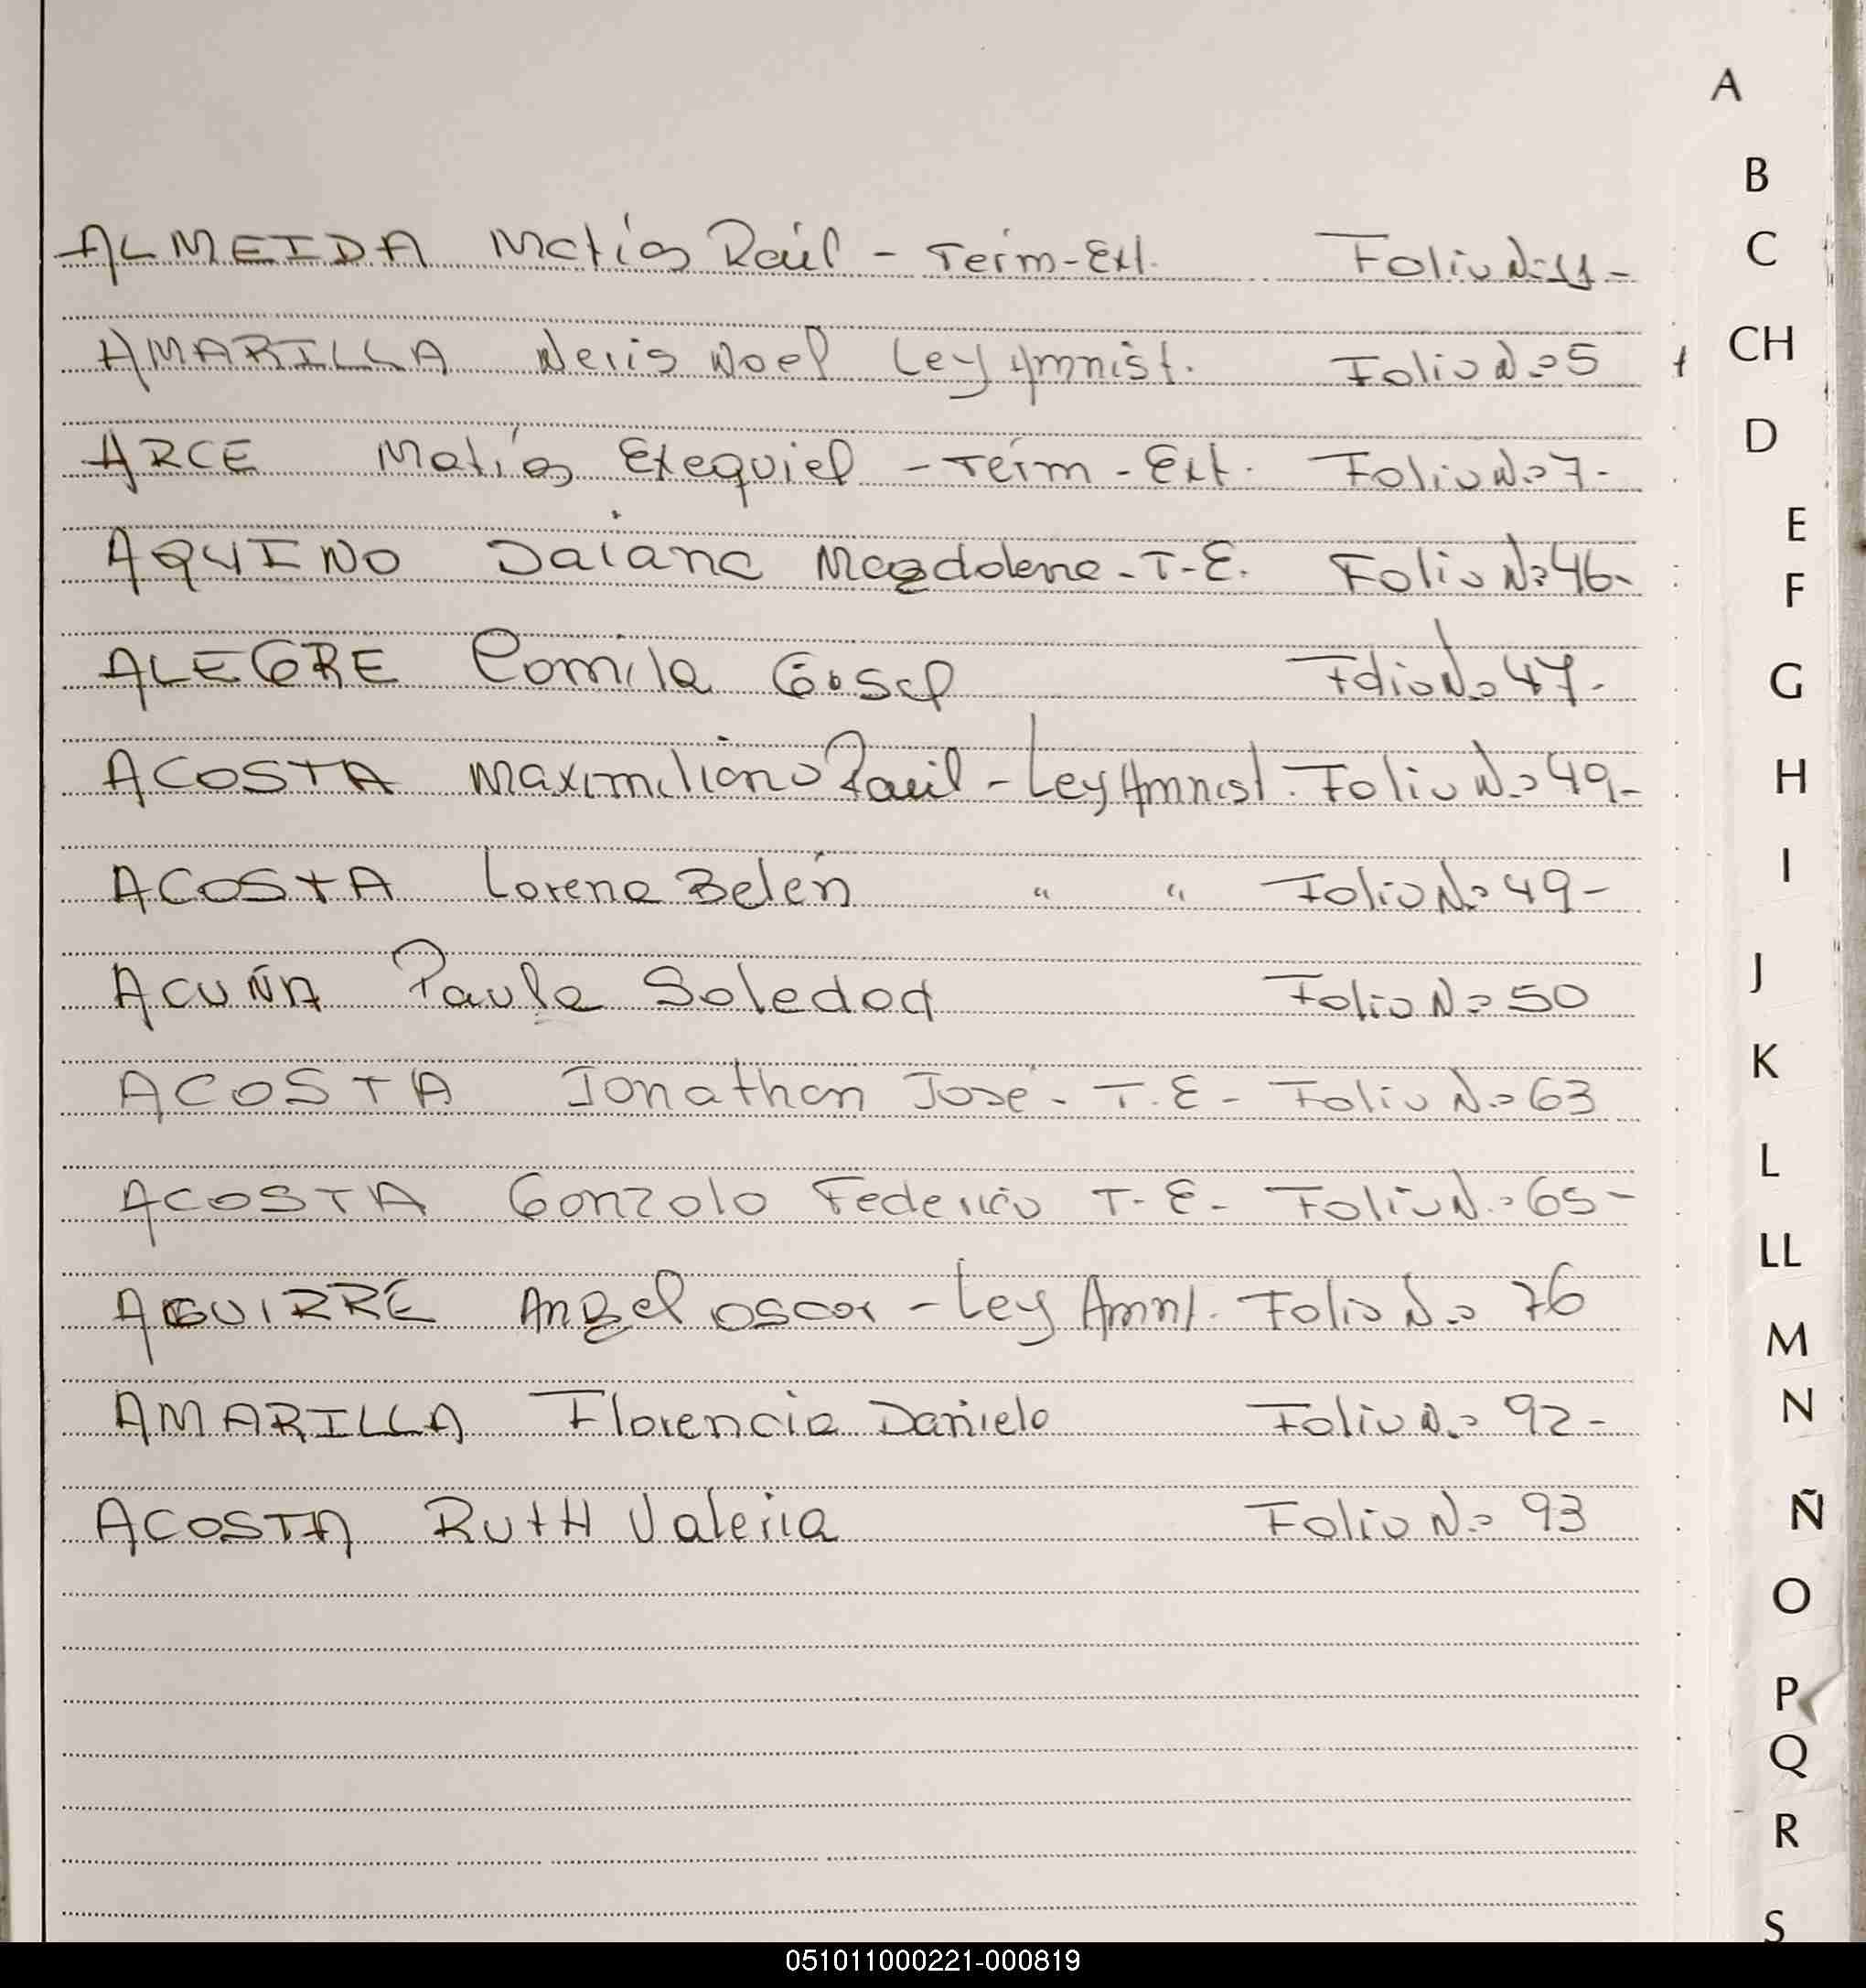 A
B
ALMEIDA Matías Raúl - Term-Ext. Folio Nº 11-
C
AMARILLA Neris Noel Ley Amnist. Folio Nº 5
CH
ARCE Matías Exequiel - Term - Ext. Folio Nº 7-
D
E
AQUINO Daiana Magdalena - T-E. Folio Nº 46-
F
ALEGRE Camila Gisel Folio Nº 47-
G
ACOSTA Maximiliano Raúl - Ley Amnist. Folio Nº 49-
H
ACOSTA Lorena Belén " " Folio Nº 49-
I
ACUÑA Paula Soledad Folio Nº 50
J
K
ACOSTA Jonathan José - T.E - Folio Nº 63
L
ACOSTA Gonzalo Federico T-E- Folio Nº 65-
LL
AGUIRRE Angel Oscar - Ley Amni. Folio Nº 76
M
AMARILLA Florencia Daniela Folio Nº 92-
N
ACOSTA RUTH Valeria Folio Nº 93
Ñ
O
P
Q
R
S
051011000221-000819